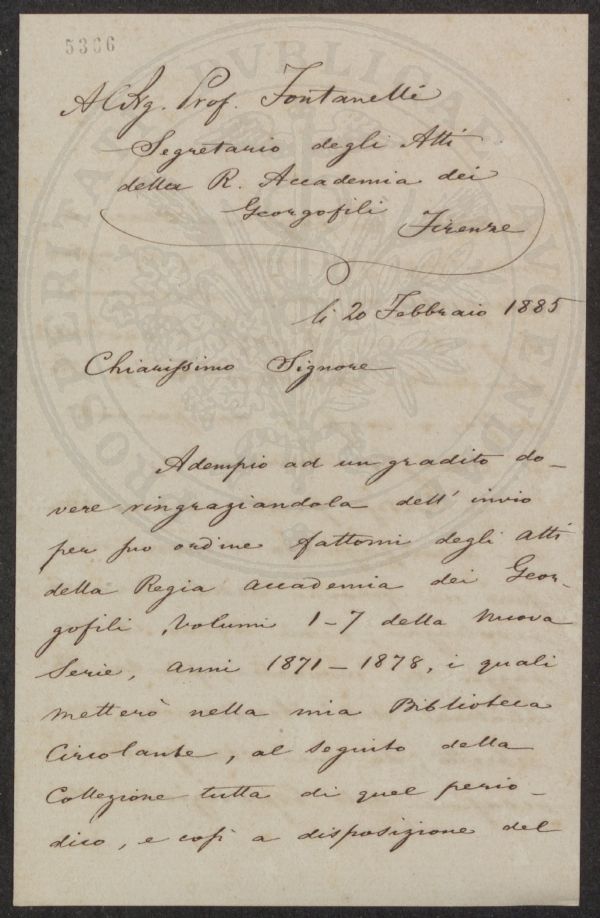 5366
Al Sig. Prof. Fontanelli
Segretario degli Atti
della R. Accademia dei
Georgofili Firenze
li 20 Febbraio 1885
Chiarissimo Signore
Adempio ad un gradito do-
vere ringraziandola dell' invio
per suo ordine fattomi degli Atti
della Regia Accademia dei Geor-
gofili, Volumi 1-7 della Nuova
Serie, anni 1871-1878, i quali
metterò nella mia Biblioteca
Circolante, al seguito della
Collezione tutta di quel perio-
dico, e così a disposizione del
PROSPERITATI PUBLICAE AUGENDAE